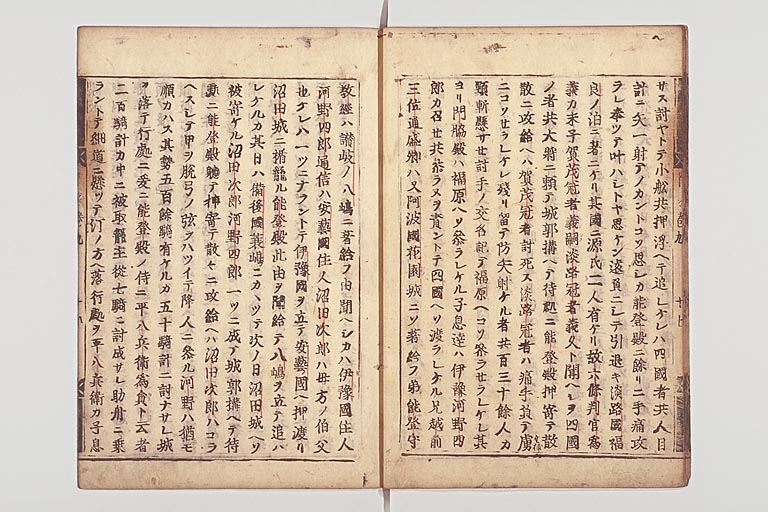 サス討ヤトテ小舩共押浮ヘテ追シケレハ四國者共人目
計ニ矢一射テノカントコソ思シカ能登殿ニ餘リニ手痛攻
ラレ奉ツテ叶ハシトヤ思ケン遠負ニシテ引退キ淡路國福
良ノ泊ニ著ニケリ其國ニ源氏二人有ケリ故六條判官爲
義カ末子賀茂冠者義嗣淡路冠者義久ト聞ヘシヲ四國
ノ者共大將ニ頼テ城郭搆ヘテ待処ニ能登殿押寄テ散
散ニ攻給ヘハ賀茂冠者討死ス淡路冠者ハ痛手負テ虜
ニコソセラレケレ殘リ留テ防矢射ケル者共百三十餘人カ
頸斬懸サセ討手ノ交名記テ福原ヘコソ参ラセラレケレ其
ヨリ門脇殿ハ福原ヘソ参ラレケル子息達ハ伊豫河野四
郎カ召セ共参ラヌヲ責ントテ四國ヘソ渡ラレケル兄越前
三位通盛卿ハ又阿波國花園城ニソ著給フ弟能登守
教經ハ讃岐ノ八嶋ニ著給フ由聞ヘシカハ伊豫國住人
河野四郎通信ハ安藝國住人沼田次郎ハ母方ノ伯父
也ケレハ一ツニナラントテ伊豫國ヲ立テ安藝國ヘ押渡リ
沼田城ニ楯籠ル能登殿此由ヲ聞給テ八嶋ヲ立テ追ハ
レケルカ其日ハ備後國蓑嶋ニカヽツテ次ノ日沼田城ヘソ
被寄ケル沼田次郎河野四郎一ツニ成テ城郭搆ヘテ待
処ニ能登殿押寄テ散々ニ攻給ヘハ沼田次郎ハコラ
ヘスシテ甲ヲ脱弓ノ弦ヲハツイテ降人ニ参ル河野ハ猶モ
順カハス其勢五百餘騎有ケルカ五十騎計ニ討ナサレ城
ヲ落テ行處ニ爰ニ能登殿ノ侍ニ平八兵衛爲員ト云者
二百騎計カ中ニ被取籠主從七騎ニ討成サレ助舟ニ乗
ラントテ細道ニ懸ツテ汀ノ方ヘ落行處ヲ平八兵衛カ子息